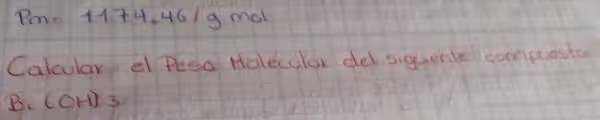 Pm= 1174.46/g mol
Calcular el Peso Molecular del siguiente compuesto
Bi (OH) 3